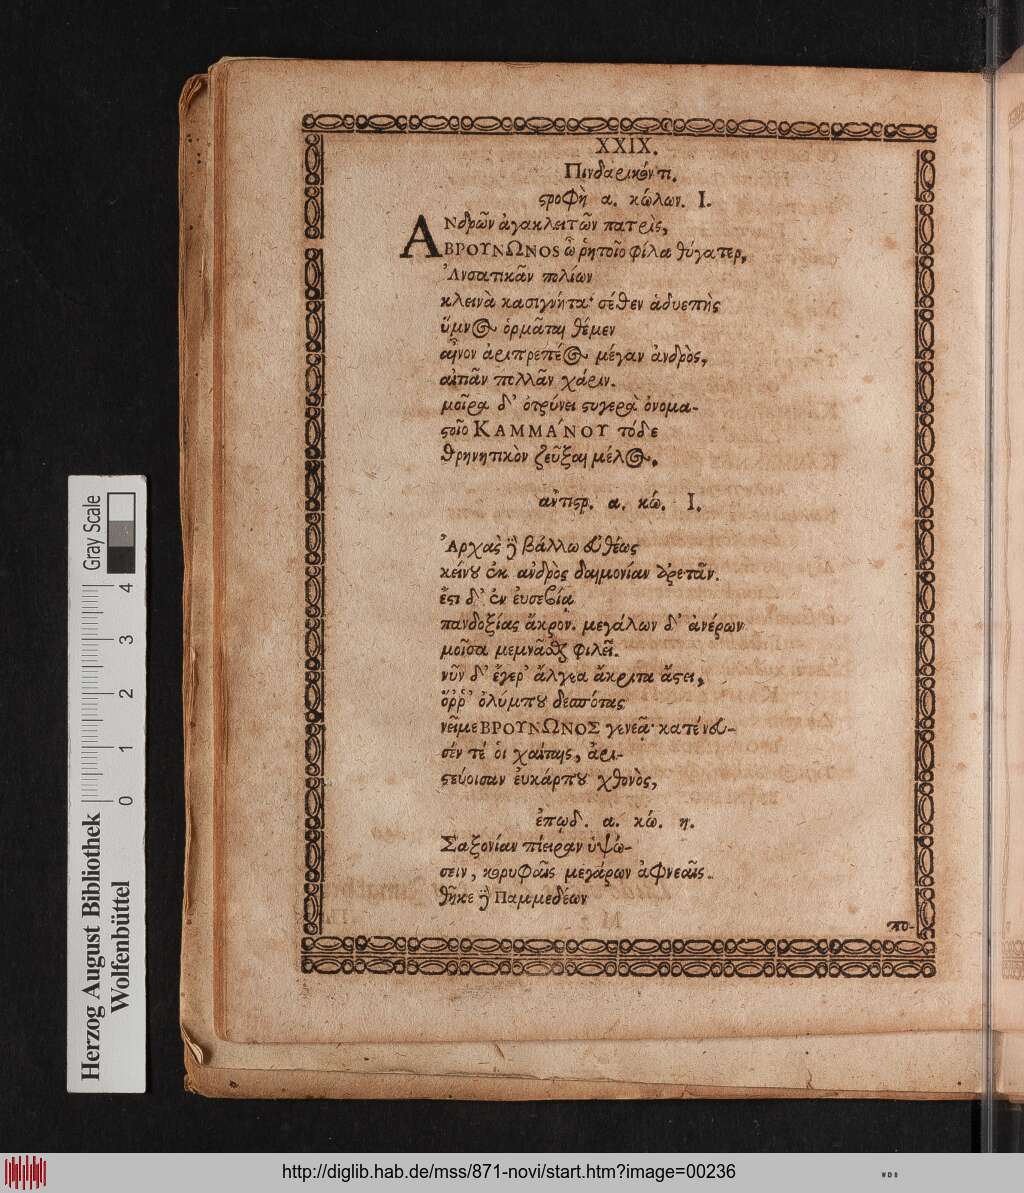 XXIX.
Πινδαρικόν τι.
ϛροφὴ α. κώλων. I.
ΑΝδρῶν ἀγακλειτῶν πατρὶς,
ΒΡΟΥΝΩΝΟΣ ὦ ῥητοῖο φίλα θύγατερ,
Ἀνσατικᾶν πολίων
κλεινὰ κασιγνήτα· σέθεν ἁδυεπὴς
ὕμνος ὁρμᾶται θέμεν
αἶνον ἀριπρεπέος μέγαν ἀνδρὸς,
αἰπᾶν πολλᾶν χάριν.
μοῖρα δ' ὀτρύνει ϛυγερὰ ὀνομα-
ϛοῖο ΚΑΜΜΑΝΟΥ τόδε
θρηνητικὸν ζεῦξαι μέλος.
ἀντιϛρ. α. κώ. I.
Ἀρχὰς δὲ βάλλω εὐθέως
κείνου ἐκ ἀνδρὸς δαιμονίαν ἀρετᾶν.
ἔϛι δ' ἐν ἐυσεβίᾳ
πανδοξίας ἄκρον. μεγάλων δ' ἀνέρων
μοῖσα μεμνᾶσθαι φιλεῖ.
νῦν δ' ἔγερ' ἄλγεα ἄκριτα ἄϛει,
ὅρρ' ὀλύμπου δεσπότας
νεῖμε ΒΡΟΥΝΩΝΟΣ γενεᾷ· κατένευ-
σέν τέ οἱ χαίταις, ἀρι-
ϛεύοισαν ἐυκάρπου χθονὸς,
ἐπῳδ. α. κώ. η.
Σαξονίαν πίειραν ὑψώ-
σειν, κορυφαῖς μεγάρων ἀφνεαῖς.
θῆκε δὲ Παμμεδέων
πο-
Gray Scale
0 1 2 3 4
Herzog August Bibliothek
Wolfenbüttel
http://diglib.hab.de/mss/871-novi/start.htm?image=00236